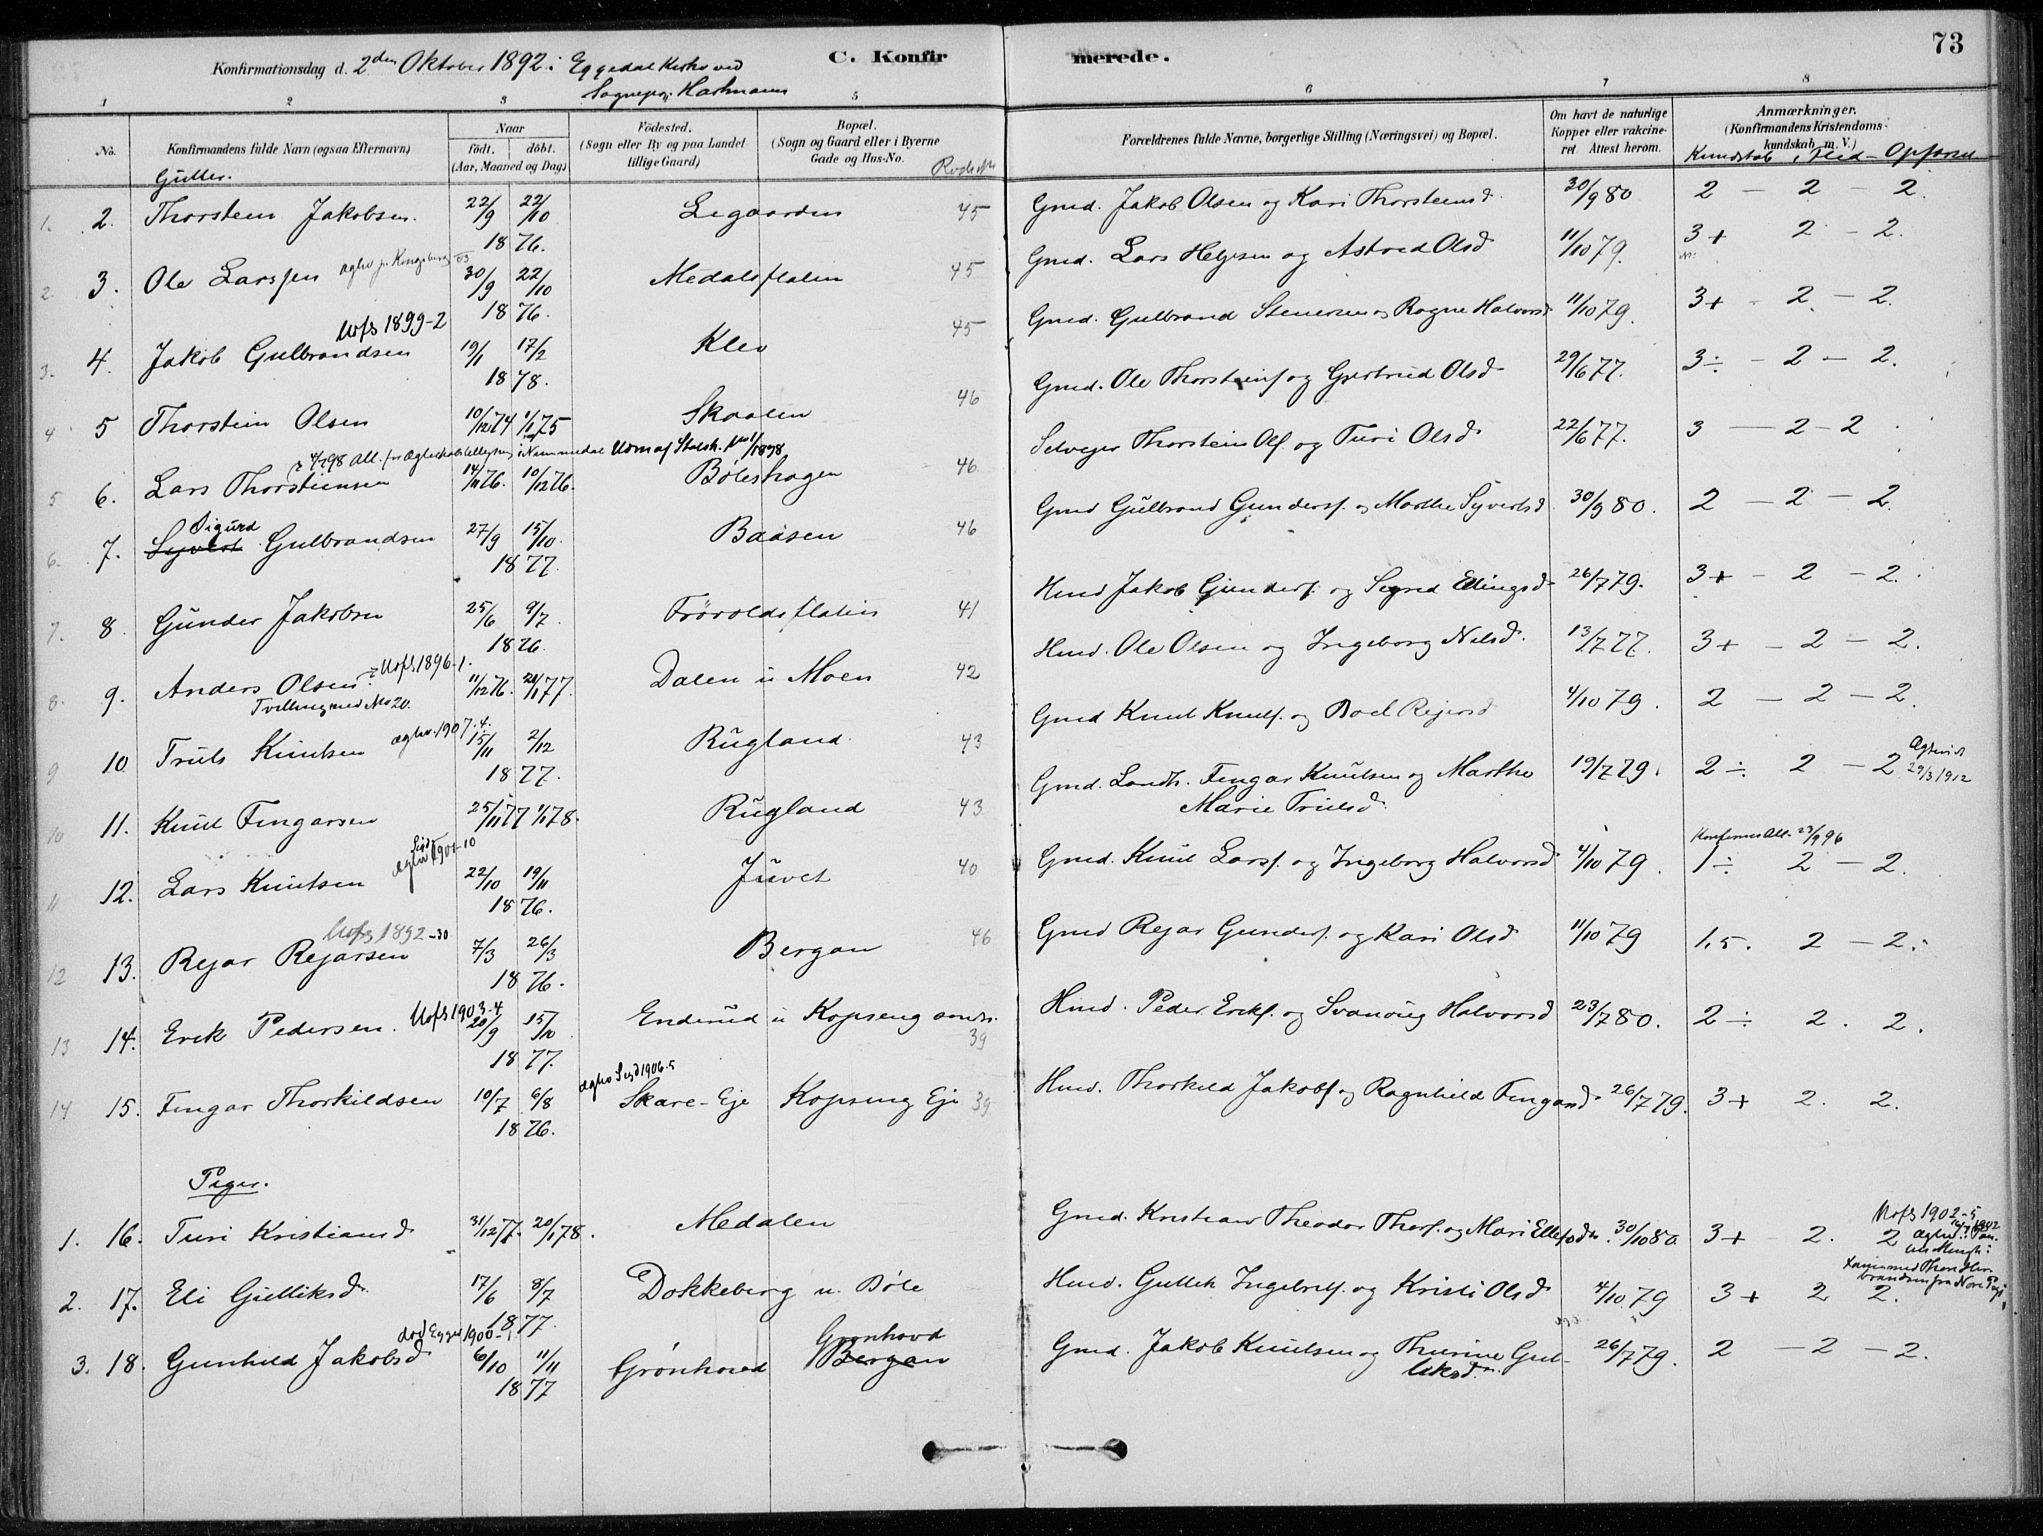 73
Konfirmationsdag d. 2den Oktober 1892 i Eggedal Kirke ved
Sognepr. Hartmann
C. Konfirmerede.
1 2 3 5 6 7 8
No. Konfirmandens fulde Navn (ogsaa Efternavn) Naar födt. döbt. (Aar, Maaned og Dag) Födested. (Sogn eller By og paa Landet tillige Gaard) Bopæl. (Sogn og Gaard eller i Byerne Gade og Hus-No. Forældrenes fulde Navne, borgerlige Stilling (Næringsvei) og Bopæl. Om havt de naturlige Kopper eller vakcineret. Attest herom. Anmærkninger. (Konfirmandens Kristendomskundskab m. V.)
Kundskab, Flid - Opførsel
Gutter.
1. 2. Thorstein Jakobsen 22/9 22/10 1876. Legaarden 45 Gmd. Jakob Olsen og Kari Thorsteinsd. 30/9 80 2 — 2 — 2.
2 3. Ole Larssen 30/9 22/10 1876. Medalsflaten 45 Gmd. Lars Helgesen og Astrid Olsd 11/10 79. 3+ 2 - 2.
Uofs 1899-2
3. 4. Jakob Gulbrandsen 19/1 17/2 1878. Klev 45 Gmd. Gulbrand Stenersen og Ragne Halvorsd 11/10 79. 3+ - 2 — 2.
4 5 Thorstein Olsen 10/12 74 1/1 75 Skaalen 46 Gmd. Ole Thorsteins. og Gjertrud Olsd 29/6 77. 3÷ - 2 — 2.
5 6. Lars Thorsteinsen 14/11 76. 10/12 76. Böleshagen 46 Selveier Thorstein Ols. og Turi Olsd 22/6 77. 3 — 2 - 2
Sigurd
6. 7. Syvert Gulbrandsen 27/9 15/10 1877. Baasen 46 Gmd Gulbrand Gunders. og Marthe Syvertsd 30/9 80. 2 — 2 — 2.
7. 8. Gunder Jakobsen 25/6 9/7 1876. Frövoldsflaten 41 Hmd Jakob Gunders. og Sigrid Ellingsd 26/7 79. 3+ - 2 - 2.
8. 9. Anders Olsen Uofs 1896-1. 11/12 76. 21/1 77. Dalen u Moen 42 Hmd. Ole Olsen og Ingeborg Nilsd. 13/7 77. 3+ - 2 - 2.
Tvilling med No 20.
9 10 Truls Knutsen ægtev. 1907.4. 15/11 2/12 1877. Rugland 43 Gmd Knut Knuts. og Boel Rejersd 4/10 79. 2 — 2 — 2.
10 11. Knut Fingarsen 25/11 77 1/1 78. Rugland 43 Gmd. Landh. Fingar Knutsen og Marthe Marie Trulsd. 19/7 79. 2÷ 2 — 2
29/3 1912
11 12. Lars Knutsen 22/10 19/11 1876. Juvet 40 Gmd. Knut Lars. og Ingeborg Halvorsd 4/10 79. 1÷ 2 — 2.
23/9 96
Uofs 1892-30
12 13. Rejar Rejarsen 7/3 26/3 1876. Bergan 46 Gmd Rejar Gunders. og Kari Olsd 11/10 79 1,5. 2 — 2.
13 14. Erik Pedersen. Uofs 1903-4 20/9 15/10 1877. Enderud u Kopseng 39 Hmd. Peder Eriks. og Svanaug Halvorsd 23/7 80. 2÷ 2. 2.
14 15. Fingar Thorkildsen 10/7 6/8 1876. Skare-Eje Kopseng Eje 39 Hmd. Thorkild Jakobs. og Ragnhild Fingarsd 26/7 79. 3+ 2. 2.
Piger.
1. 16. Turi Kristiansd 31/12 77. 20/1 78. Medalen Gmd. Kristian Theodor Thors. og Mari Ellefsd. 30/10 80. 3+ - 2. 2
Uofs 1902-5
2. 17. Eli Gulliksd 17/6 8/7 1877. Dokkeberg u. Böle Hmd. Gullik Ingebrets. og Kristi Olsd 4/10 79 3+ 2 2.
3. 18. Gunhild Jakobsd 6/10 11/11 1877 Grönhovd Bergan Grönhovd Gmd. Jakob Knutsen og Thurine Gulliksd. 26/7 79. 2 — 2 — 2.